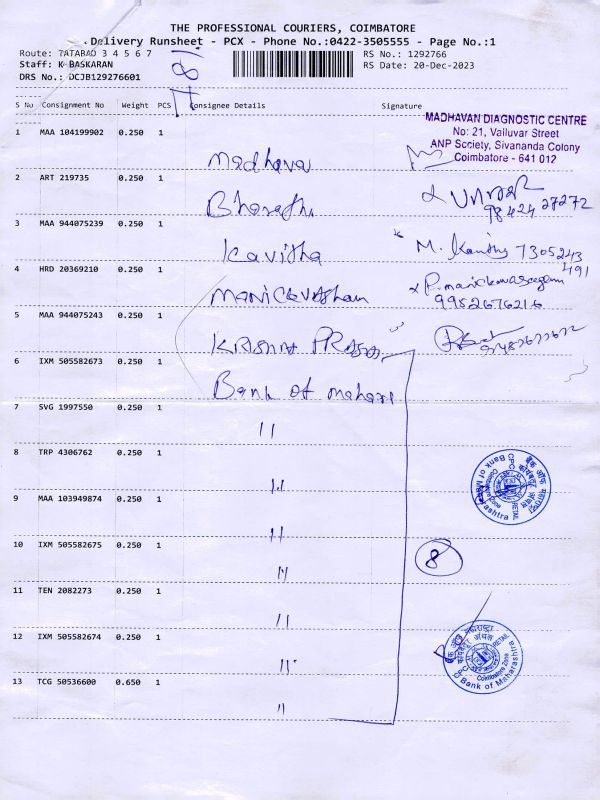 THE PROFESSIONAL COURIERS, COIMBATORE
Delivery Runsheet - PCX - Phone No.:0422-3505555 - Page No.:1
Route: TATABAD 3 4 5 6 7
RS No.: 1292766
Staff: K BASKARAN
RS Date: 20-Dec-2023
DRS No.: DCJB129276601
S No Consignment No Weight PCS Consignee Details Signature
MADHAVAN DIAGNOSTIC CENTRE
No: 21, Valluvar Street
ANP Society, Sivananda Colony
Coimbatore - 641 012
1 MAA 104199902 0.250 1
Madhava
2 ART 219735 0.250 1
Bharathi
98424 27272
3 MAA 944075239 0.250 1
Kavitha
M. 7305243
491
4 HRD 20369210 0.250 1
P. Manickavasagam
9952676216
5 MAA 944075243 0.250 1
KRISHNA PRASA
6 IXM 505582673 0.250 1
Bank of mahara
7 SVG 1997550 0.250 1
11
8 TRP 4306762 0.250 1
11
बैंक ऑफ महाराष्ट्र
Bank of Maharashtra
CPC RETAIL
Coimbatore Zone
9 MAA 103949874 0.250 1
11
10 IXM 505582675 0.250 1
11
8
11 TEN 2082273 0.250 1
11
12 IXM 505582674 0.250 1
11
बैंक ऑफ महाराष्ट्र
RETAIL
Coimbatore Zone
Bank of Maharashtra
13 TCG 50536600 0.650 1
11